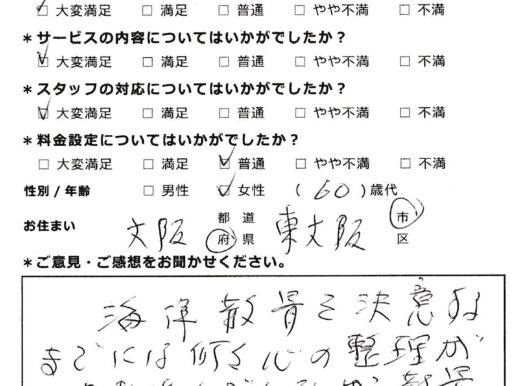 ☑ 大変満足 □ 満足 □ 普通 □ やや不満 □ 不満
＊サービスの内容についてはいかがでしたか？
☑ 大変満足 □ 満足 □ 普通 □ やや不満 □ 不満
＊スタッフの対応についてはいかがでしたか？
☑ 大変満足 □ 満足 □ 普通 □ やや不満 □ 不満
＊料金設定についてはいかがでしたか？
□ 大変満足 □ 満足 ☑ 普通 □ やや不満 □ 不満
性別 / 年齢 □ 男性 ☑ 女性 ( 60 ) 歳代
お住まい 大阪 都 道 府 県 東大阪 市 区
＊ご意見・ご感想をお聞かせください。
海洋散骨を決意する
までには何を心の整理が